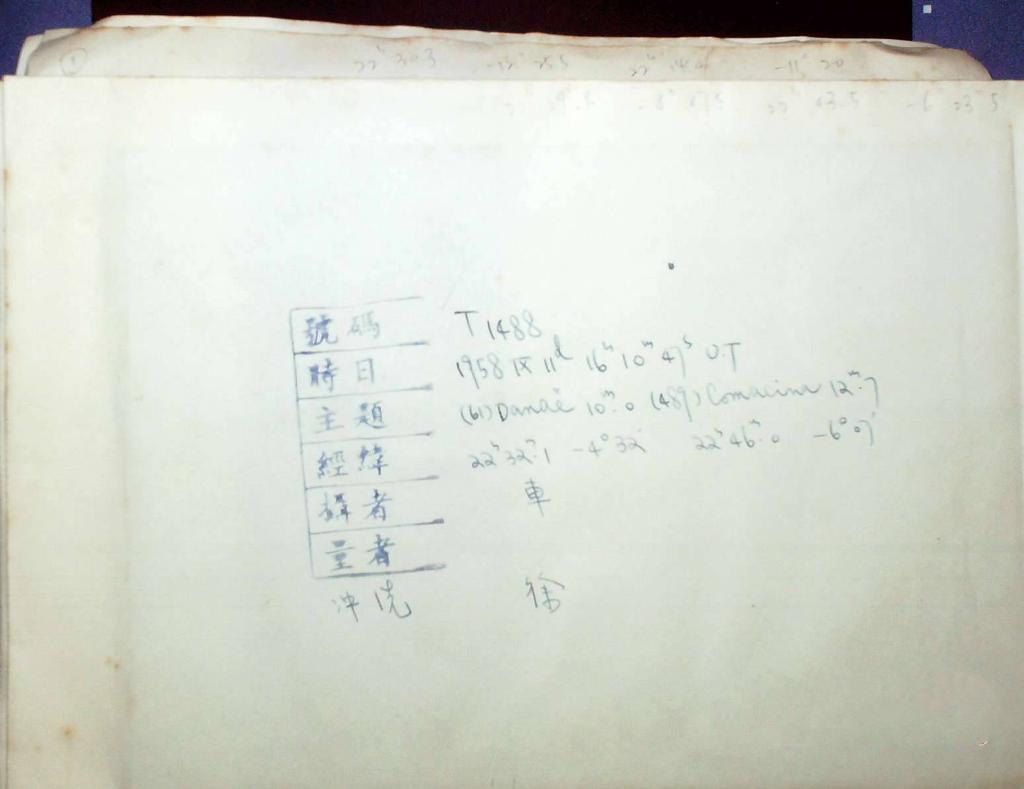 22ʰ 30.3 -12° 25.5 22ʰ 14.0 -11° 20
-8° 47.5 22ʰ 43.5 -6° 23.5
號碼 T 1488
時日 1958 IX 11ᵈ 16ʰ 10ᵐ 47ˢ U.T
主題 (61) Danaë 10ᵐ.0 (489) Comacina 12ᵐ.7
經緯 22ʰ32ᵐ.1 -4°32′ 22ʰ46ᵐ.0 -6°07′
攝者 車
量者
沖洗 徐